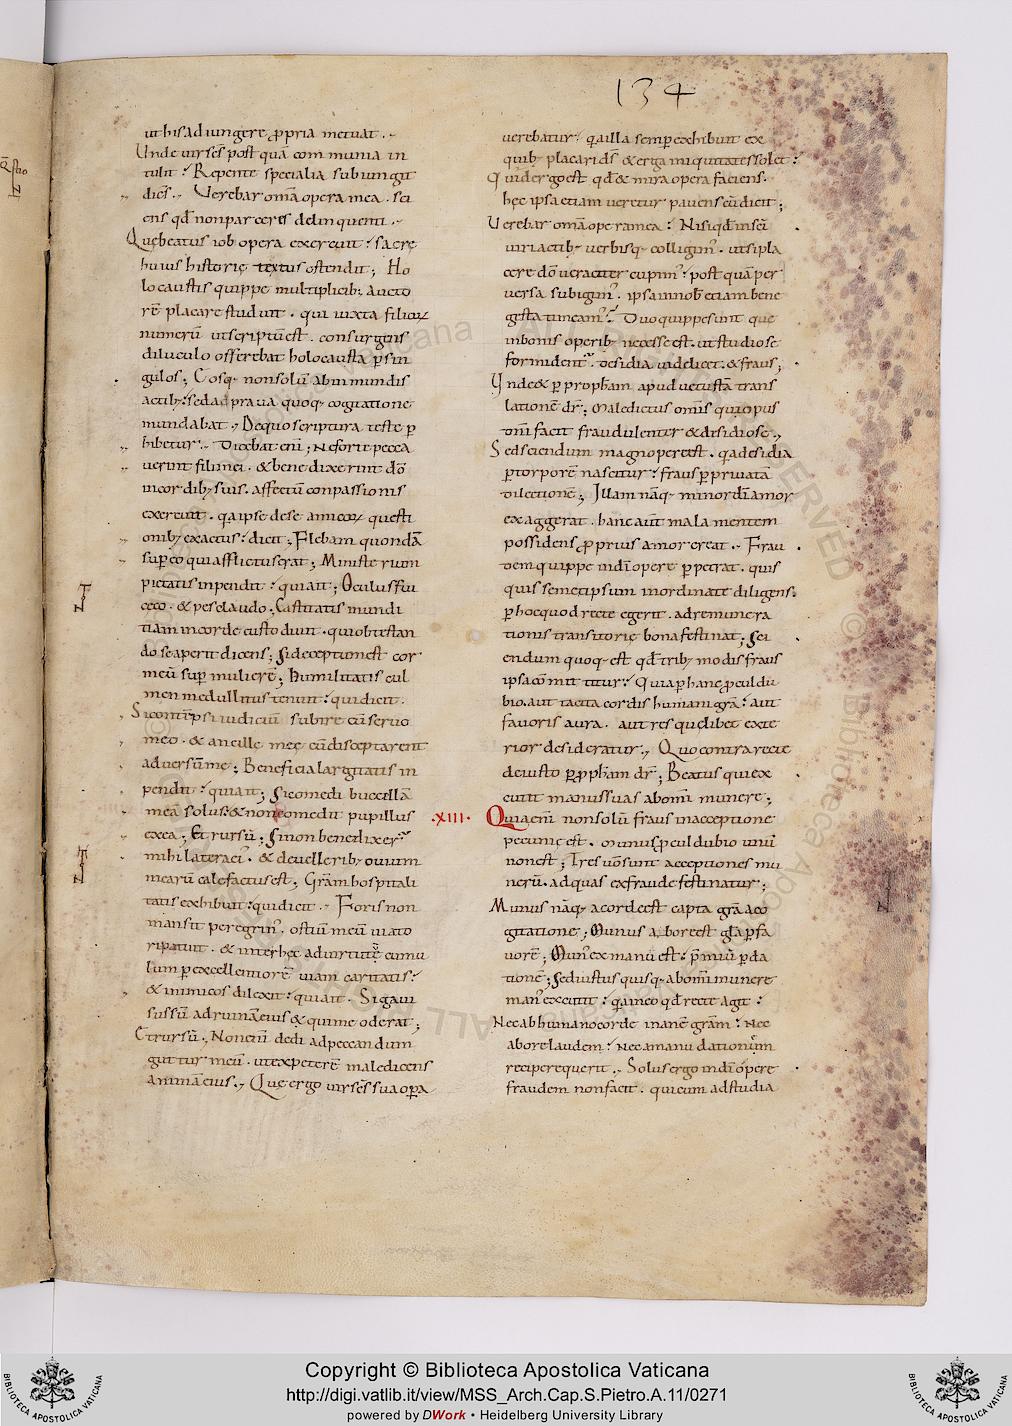 134
ut his adiungere ꝓpria metuat.
Unde uir scs̄ postquā communia in
tulit? Repente specialia subiungit
dicēs. Uerebar om̄a opera mea. sci
ens qd̄ non parceres delinquenti.
Quę beatus iob opera exercuit? sacrę
huius historię textus ostendit; Ho
locaustis quippe multiplicib; aucto
rē placare studuit. qui iuxta filioꝝ
numerū ut scriptū est. consurgens
diluculo offerebat holocausta ꝑ sin
gulos; Eosq; non solū ab inmundis
actib;? sed a praua quoq; cogitatione
mundabat, De quo scriptura teste ꝑ
hibetur. Dicebat enī; Ne forte pecca
uerint filii mei. & benedixerint dō
in cordib; suis. affectū conpassionis
exercuit. q̄a ipse de se amicoꝝ questi
onib; exactus? dicit; Flebam quondā
suꝑ eo qui afflictus erat; Ministerium
pietatis inpendit? qui ait; Oculus fui
ceco. & pes claudo; Castitatis mundi
tiam in corde custodiuit. qui obtestan
do se aperit dicens; Si deceptum est cor
meū suꝑ mulierē; Humilitatis cul
men medullitus tenuit? qui dicit.
Si contēpsi iudiciū subire cū seruo
meo. & ancille meę cū disceptarent
aduersū me; Beneficia largitatis in
pendit? qui ait; Si comedi buccellā
meā solus. & non comedit pupillus
ex ea; Et rursū; Si non benedixer̄
mihi latera ei'. & de uellerib; ouium
mearū calefactus est; Grām hospitali
tatis exhibuit? qui dicit. Foris non
mansit peregrin'. ostiū meū uiato
ri patuit. & inter hęc ad uirtutū cumu
lum ꝑ excellentiorē uiam caritatis?
& inimicos dilexit? qui ait. Si gaui
sus sū ad ruinā eius & qui me oderat;
Et rursū, Non enī dedi ad peccandum
guttur meū. ut expeterē maledicens
animā eius, Quę ergo uir scs̄ sua oꝑa
uerebatur? q̄a illa semꝑ exhibuit ex
quib; placari ds̄ & erga iniquitates solet?
Quid ergo est qd̄ & mira opera faciens.
hęc ipsa etiam ueretur pauens cū dicit;
Uerebar om̄a opera mea? Nisi qd̄ in scī
uiri actib; uerbisq; colligim'. ut si pla
cere dō ueraciter cupim'? postquā per
uersa subigim'. ipsa in nob̄ etiam bene
gesta timeam'? Duo quippe sunt que
in bonis operib; necesse est. ut studiose
formident'. desidia uidelicet. & fraus;
Unde & ꝑ prophām apud uetustā trans
lationē dr̄; Maledictus om̄is qui opus
dn̄i facit fraudulenter & desidiose,
Sed sciendum magnopere est. q̄a desidia
ꝑ torporē nascitur? fraus ꝑ priuatā
dilectionē; Illam nāq; minor dī amor
exaggerat. hanc aūt mala mentem
possidens ꝓprius amor creat. Frau
dem quippe in dī opere ꝑpetrat. quis
quis semetipsum inordinate diligens.
ꝑ hoc quod recte egerit. ad remunera
tionis transitorię bona festinat; Sci
endum quoq; est qd̄ trib; modis fraus
ipsa cōmittitur? Quia ꝑ hanc procul du
bio. aut tacita cordis humani grā? aut
fauoris aura. aut res quęlibet exte
rior desideratur, Quo contra recte
de iusto ꝑ ꝓphām dr̄; Beatus qui ex
cutit manus suas ab om̄i munere;
.XIII. Quia enī non solū fraus in acceptione
pecunię est. munus ꝓcul dubio unū
non est; Tres uō sunt acceptiones mu
nerū. ad quas ex fraude festinatur;
Munus nāq; a corde est capta grā a co
gitatione; Munus a bore est glā ꝑ fa
uorē; Mun' ex manu est? p̄miū ꝑ da
tionē; Sed iustus quisq; ab om̄i munere
man' excutit? q̄a in eo qd̄ recte agit?
Nec ab humano corde inanē grām? nec
ab ore laudem? nec a manu dationū
recipere querit. Solus ergo in dī opere
fraudem non facit. qui cum ad studia
Copyright © Biblioteca Apostolica Vaticana
http://digi.vatlib.it/view/MSS_Arch.Cap.S.Pietro.A.11/0271
powered by DWork • Heidelberg University Library